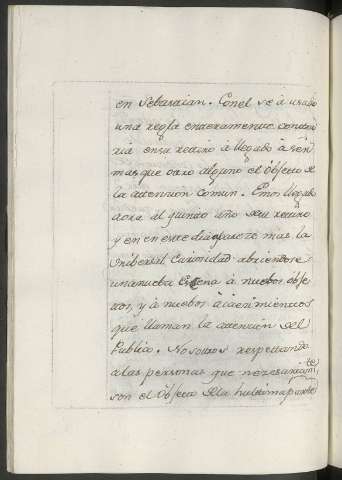 en Sebastian. Con el se à usado
una regla enteramente contra
ria en su retiro à llegado à ser
mas que otro alguno el Objecto de
la attencion comun. Emos llegado
aora al quinto año de su retiro
y en este dia parece mas la
Unibersal Curiosidad abriendose
una nueba Escena à nuebos obje
tos, y à nuebos acaecimientos
que llaman la attencion del
Publico. Nosotros respettando
a las personas que nezesariam.te
son el Objeto de la hultima parte